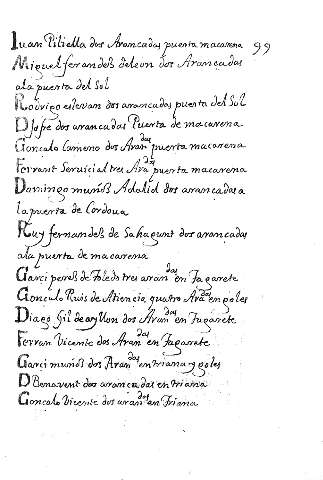 Iuan Piliella dos Arancadas puerta macarena 99
Miguel ferandeß deleon dos Arancadas
ala puerta del Sol
Rodrigo estevan dos arancadas puerta del Sol
D Jofre dos arancadas Puerta de macarena
Goncalo Cameno dos Arandas puerta macarena
Ferrant Servicial tres Aradas puerta macarena
Domingo muñoß Adalid dos arancadas a
la puerta de Cordova
Ruy fernandeß de Sahagunt dos arancadas
ala puerta de macarena
Garci pereß de Toledo tres arandas en Tagarete
Goncalo Ruis de Atiencia quatro Aradas en goles
Diago Gil de ayllon dos Arandas en Tagarete
Ferran Vicente dos Arandas en Tagarete
Garci muñoß dos Arandas en triana y goles
D Benavent dos arancadas en triana
Goncalo Vicente dos arandas en Triana